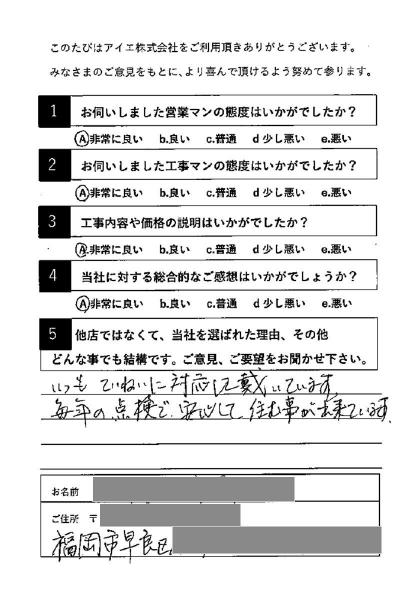 このたびはアイエ株式会社をご利用頂きありがとうございます。
みなさまのご意見をもとに、より喜んで頂けるよう努めて参ります。
1 お伺いしました営業マンの態度はいかがでしたか?
A非常に良い b.良い c.普通 d少し悪い e.悪い
2 お伺いしました工事マンの態度はいかがでしたか?
A非常に良い b.良い c.普通 d少し悪い e.悪い
3 工事内容や価格の説明はいかがでしたか?
a.非常に良い b.良い c.普通 d少し悪い e.悪い
4 当社に対する総合的なご感想はいかがでしょうか?
A非常に良い b.良い c.普通 d少し悪い e.悪い
5 他店ではなくて、当社を選ばれた理由、その他
どんな事でも結構です。ご意見、ご要望をお聞かせ下さい。
いつもていねいに対応して戴いています
毎年の点検で安心して住む事が出来ています。
お名前
ご住所 〒
福岡市早良区